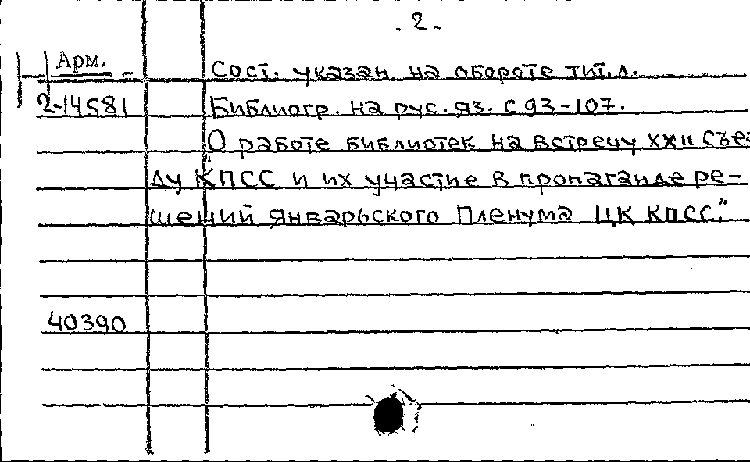 - 2 -
Арм.
2-14581
Сост. указан на обороте тит.л.
Библиогр. на рус. яз. с 93-107.
О работе библиотек на встречу XXII Съез-
ду КПСС и их участие в пропаганде ре-
шений Январьского Пленума ЦК КПСС."
40390